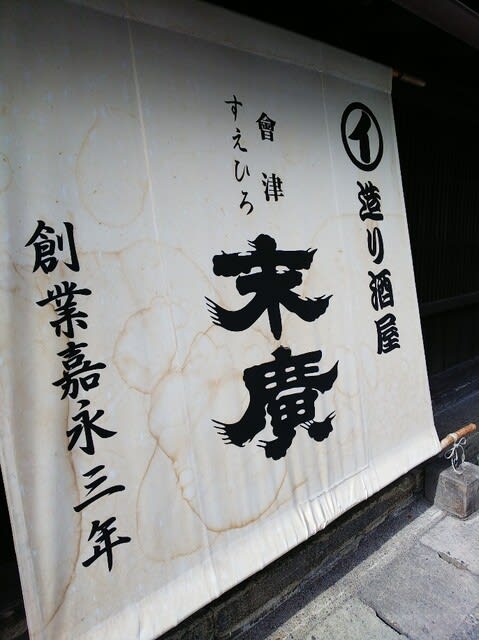 イ 造り酒屋
會津
すえひろ
末廣
創業嘉永三年